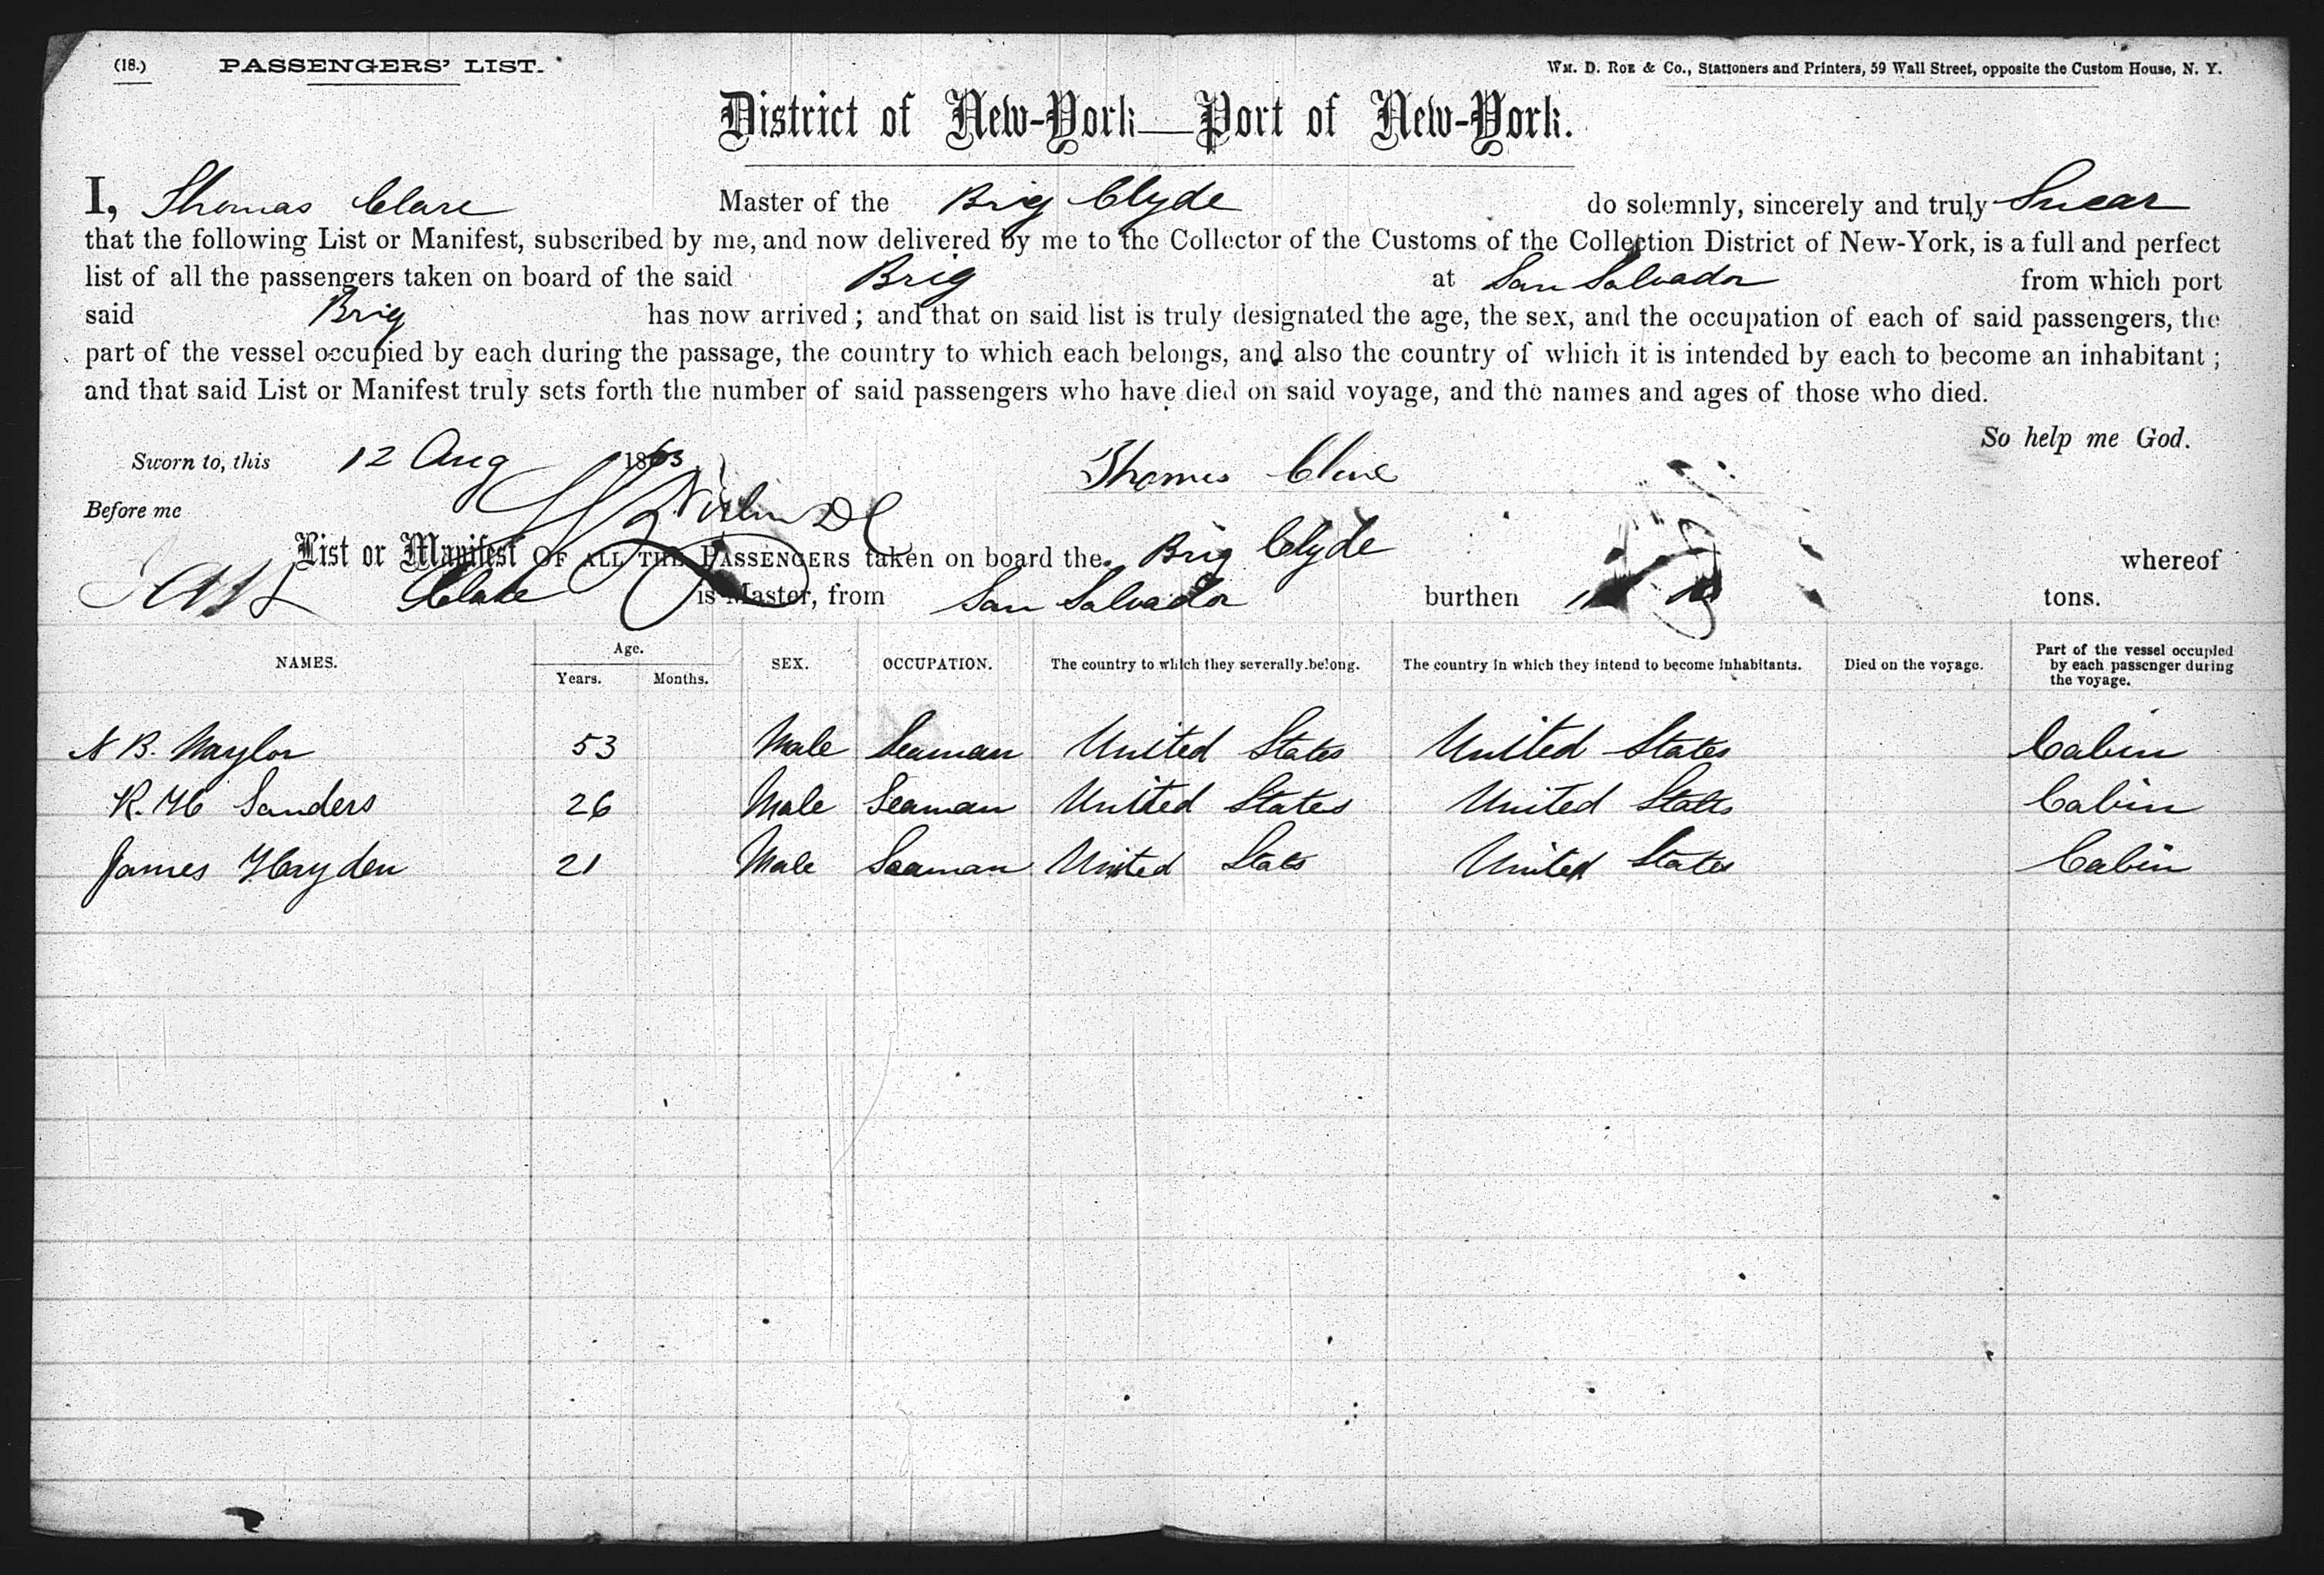 (18.) PASSENGERS' LIST. WM. D. ROE & Co., Stationers and Printers, 59 Wall Street, opposite the Custom House, N. Y.
District of New-York—Port of New-York.
I, Thomas Clare Master of the Brig Clyde do solemnly, sincerely and truly Swear
that the following List or Manifest, subscribed by me, and now delivered by me to the Collector of the Customs of the Collection District of New-York, is a full and perfect
list of all the passengers taken on board of the said Brig at San Salvador from which port
said Brig has now arrived; and that on said list is truly designated the age, the sex, and the occupation of each of said passengers, the
part of the vessel occupied by each during the passage, the country to which each belongs, and also the country of which it is intended by each to become an inhabitant;
and that said List or Manifest truly sets forth the number of said passengers who have died on said voyage, and the names and ages of those who died.
So help me God.
Sworn to, this 12 Aug 1863 Thomas
Before me
List or Manifest OF ALL THE PASSENGERS taken on board the Brig Clyde whereof
Clare is Master, from San Salvador burthen tons.
NAMES. Age. Years. Months. SEX. OCCUPATION. The country to which they severally belong. The country in which they intend to become inhabitants. Died on the voyage. Part of the vessel occupied by each passenger during the voyage.
N B. Naylor 53 Male Seaman United States United States Cabin
R. H Sanders 26 Male Seaman United States United States Cabin
James Hayden 21 Male Seaman United Stats United States Cabin